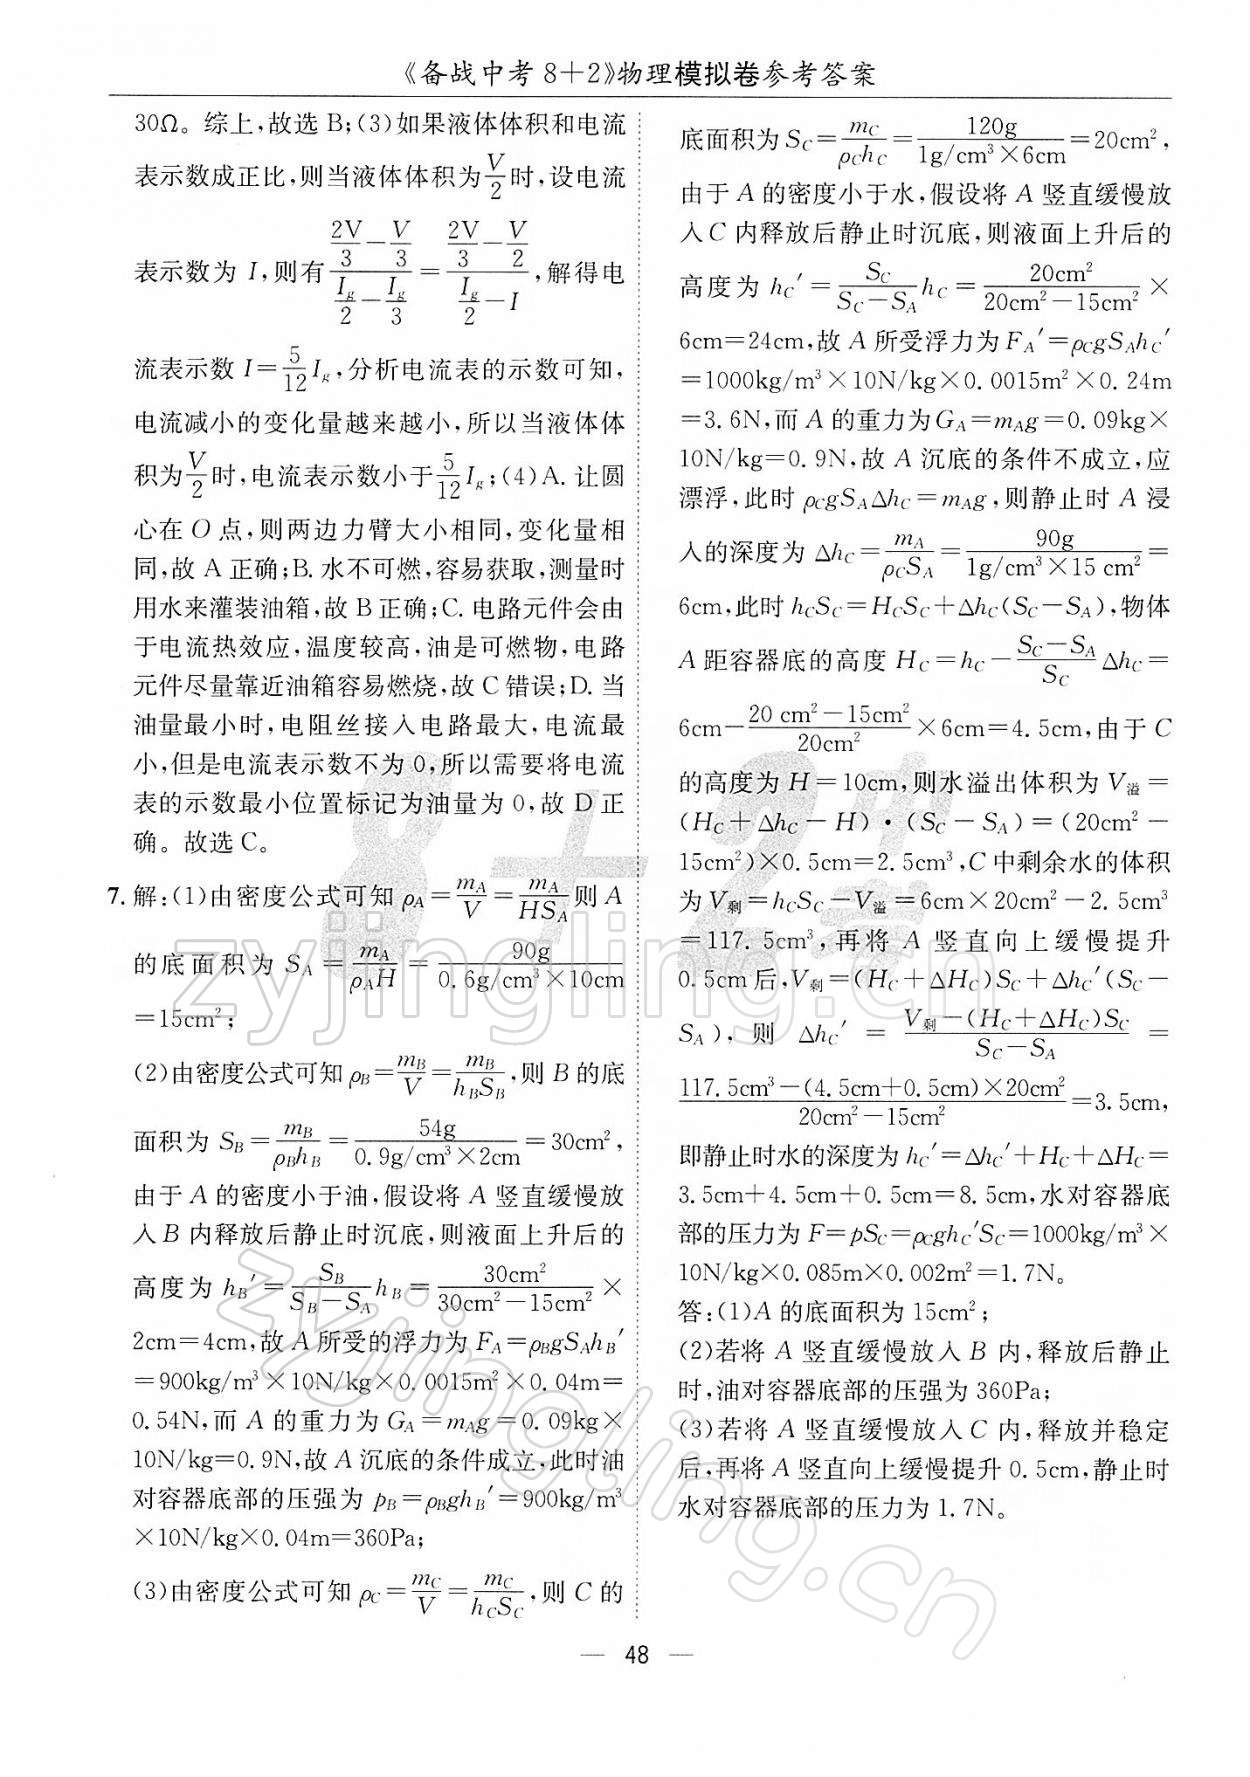 《备战中考 8+2》物理模拟卷参考答案
30Ω。综上,故选 B;(3)如果液体体积和电流
表示数成正比,则当液体体积为V/2时,设电流
表示数为 I,则有(2V/3−V/3)/(I_g/2−I_g/3)=(2V/3−V/2)/(I_g/2−I),解得电
流表示数 I=5/12 I_g,分析电流表的示数可知,
电流减小的变化量越来越小,所以当液体体
积为V/2时,电流表示数小于5/12 I_g;(4)A. 让圆
心在 O 点,则两边力臂大小相同,变化量相
同,故 A 正确;B. 水不可燃,容易获取,测量时
用水来灌装油箱,故 B 正确;C. 电路元件会由
于电流热效应,温度较高,油是可燃物,电路
元件尽量靠近油箱容易燃烧,故 C 错误;D. 当
油量最小时,电阻丝接入电路最大,电流最
小,但是电流表示数不为 0,所以需要将电流
表的示数最小位置标记为油量为 0,故 D 正
确。故选 C。
7. 解:(1)由密度公式可知 ρ_A=m_A/V=m_A/(HS_A)则 A
的底面积为 S_A=m_A/(ρ_A H)=90g/(0.6g/cm³×10cm)
=15cm²;
(2)由密度公式可知 ρ_B=m_B/V=m_B/(h_B S_B),则 B 的底
面积为 S_B=m_B/(ρ_B h_B)=54g/(0.9g/cm³×2cm)=30cm²,
由于 A 的密度小于油,假设将 A 竖直缓慢放
入 B 内释放后静止时沉底,则液面上升后的
高度为 h_B′=S_B/(S_B−S_A) h_B=30cm²/(30cm²−15cm²)×
2cm=4cm,故 A 所受的浮力为 F_A=ρ_B gS_A h_B′
=900kg/m³×10N/kg×0.0015m²×0.04m=
0.54N,而 A 的重力为 G_A=m_A g=0.09kg×
10N/kg=0.9N,故 A 沉底的条件成立,此时油
对容器底部的压强为 p_B=ρ_B gh_B′=900kg/m³
×10N/kg×0.04m=360Pa;
(3)由密度公式可知 ρ_C=m_C/V=m_C/(h_C S_C),则 C 的
底面积为 S_C=m_C/(ρ_C h_C)=120g/(1g/cm³×6cm)=20cm²,
由于 A 的密度小于水,假设将 A 竖直缓慢放
入 C 内释放后静止时沉底,则液面上升后的
高度为 h_C′=S_C/(S_C−S_A) h_C=20cm²/(20cm²−15cm²)×
6cm=24cm,故 A 所受浮力为 F_A′=ρ_C gS_A h_C′
=1000kg/m³×10N/kg×0.0015m²×0.24m
=3.6N,而 A 的重力为 G_A=m_A g=0.09kg×
10N/kg=0.9N,故 A 沉底的条件不成立,应
漂浮,此时 ρ_C gS_A Δh_C=m_A g,则静止时 A 浸
入的深度为 Δh_C=m_A/(ρ_C S_A)=90g/(1g/cm³×15 cm²)=
6cm,此时 h_C S_C=H_C S_C+Δh_C(S_C−S_A),物体
A 距容器底的高度 H_C=h_C−(S_C−S_A)/S_C Δh_C=
6cm−(20 cm²−15cm²)/20cm²×6cm=4.5cm,由于 C
的高度为 H=10cm,则水溢出体积为 V溢=
(H_C+Δh_C−H)·(S_C−S_A)=(20cm²−
15cm²)×0.5cm=2.5cm³,C 中剩余水的体积
为 V剩=h_C S_C−V溢=6cm×20cm²−2.5cm³
=117.5cm³,再将 A 竖直向上缓慢提升
0.5cm 后,V剩=(H_C+ΔH_C)S_C+Δh_C′(S_C−
S_A),则 Δh_C′=(V剩−(H_C+ΔH_C)S_C)/(S_C−S_A)=
(117.5cm³−(4.5cm+0.5cm)×20cm²)/(20cm²−15cm²)=3.5cm,
即静止时水的深度为 h_C′=Δh_C′+H_C+ΔH_C=
3.5cm+4.5cm+0.5cm=8.5cm,水对容器底
部的压力为 F=pS_C=ρ_C gh_C′S_C=1000kg/m³×
10N/kg×0.085m×0.002m²=1.7N。
答:(1)A 的底面积为 15cm²;
(2)若将 A 竖直缓慢放入 B 内,释放后静止
时,油对容器底部的压强为 360Pa;
(3)若将 A 竖直缓慢放入 C 内,释放并稳定
后,再将 A 竖直向上缓慢提升 0.5cm,静止时
水对容器底部的压力为 1.7N。
— 48 —
zyjingling.cn
zyjingling.cn